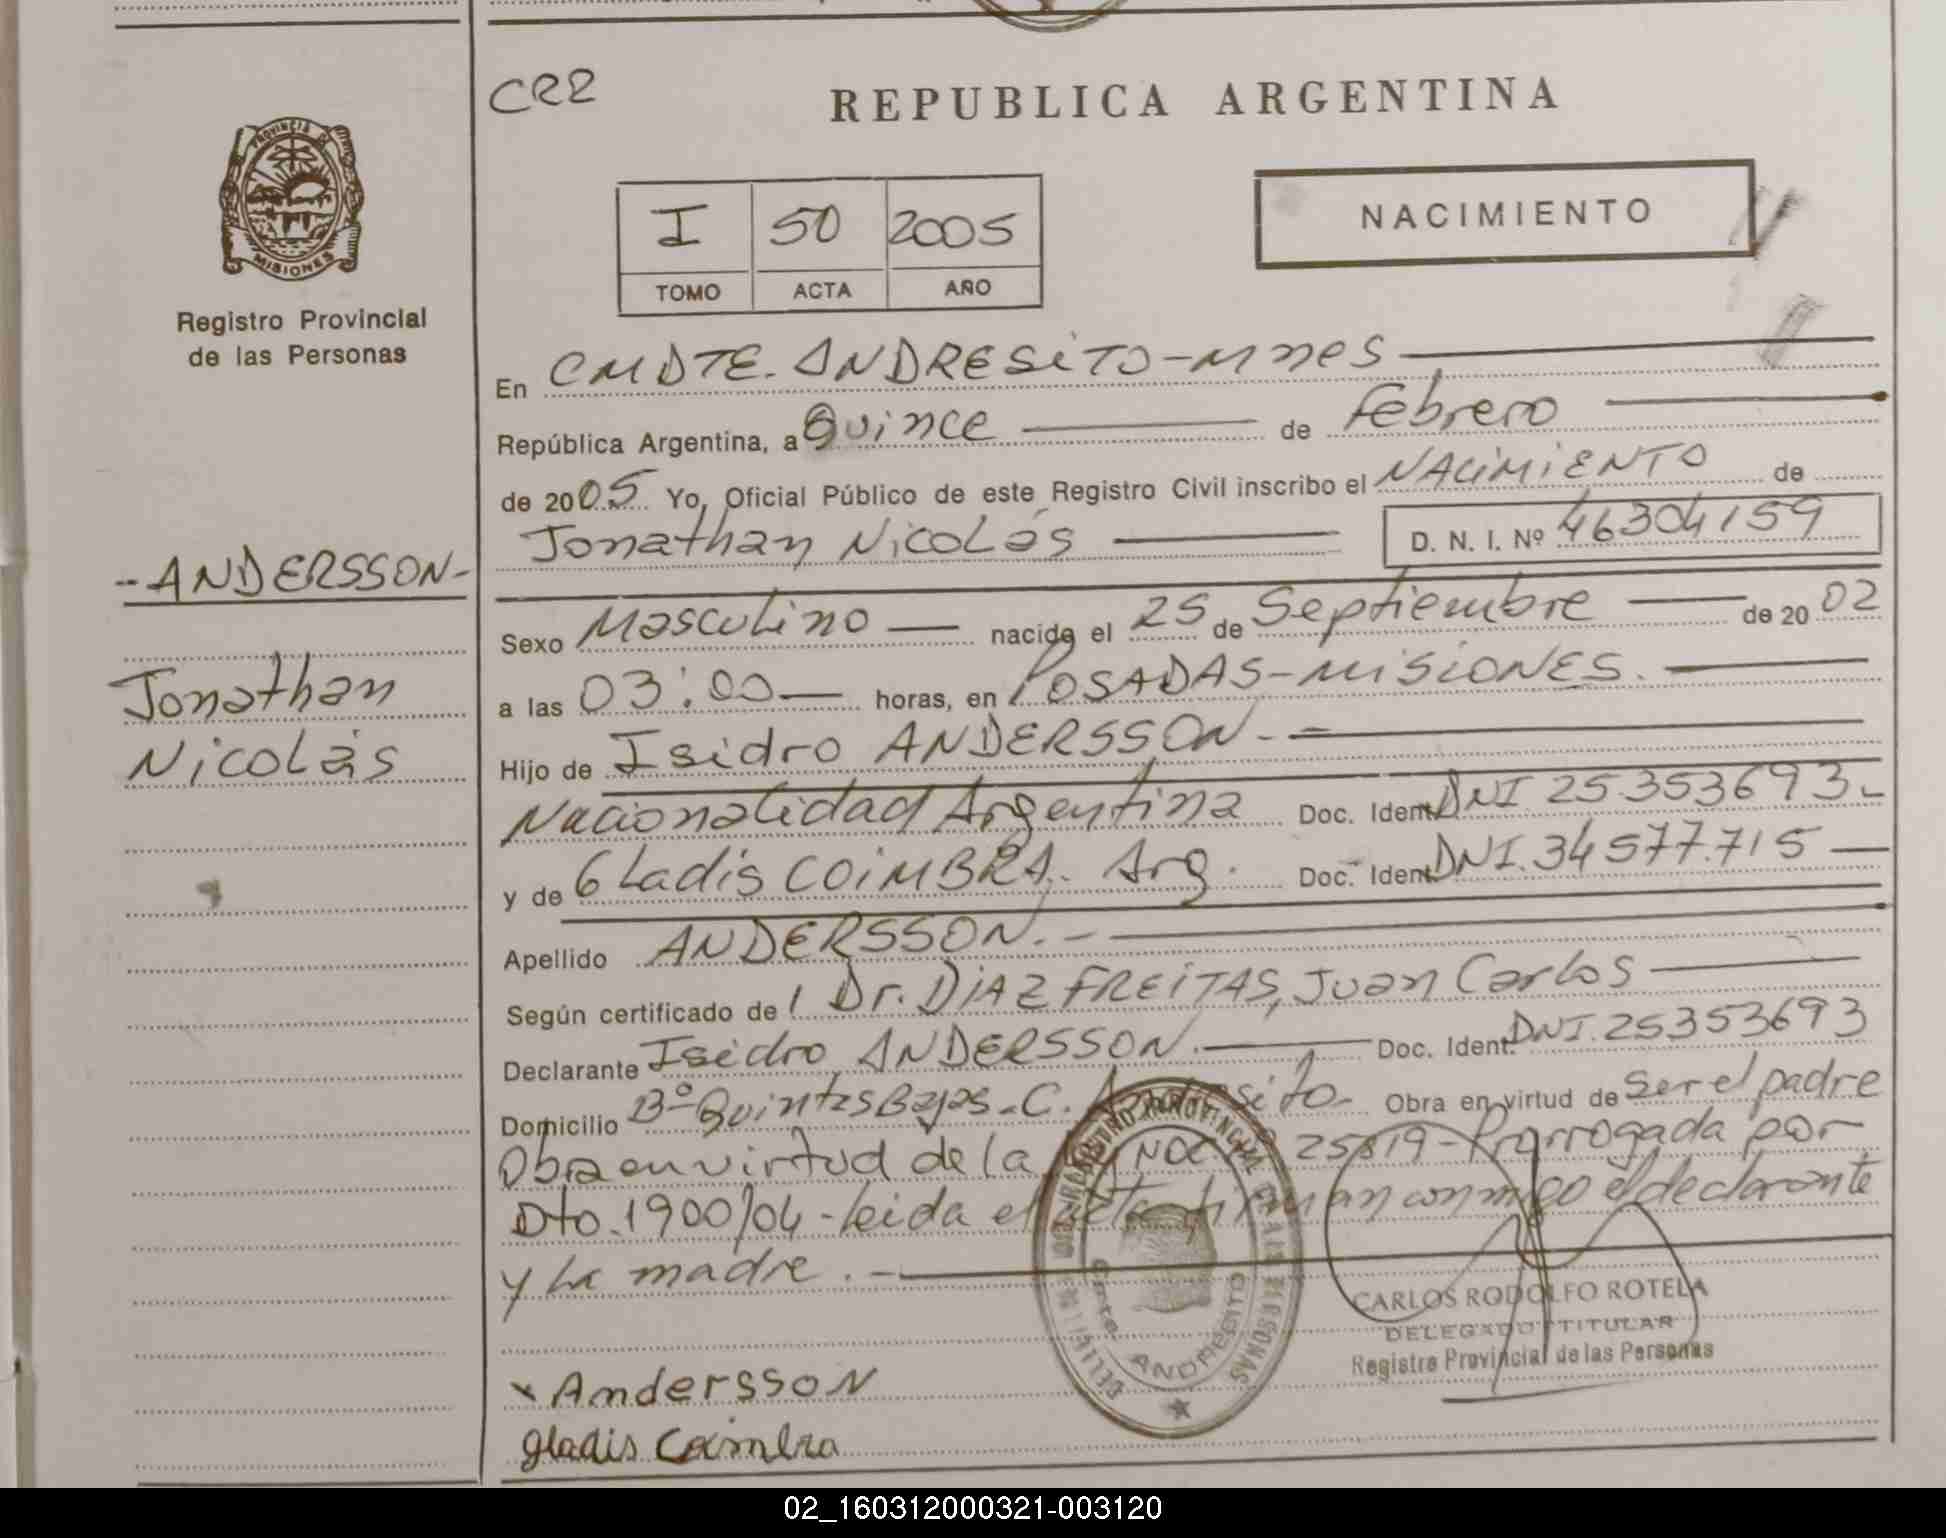 CRR
REPUBLICA ARGENTINA
PROVINCIA DE
MISIONES
Registro Provincial
de las Personas
I 50 2005
TOMO ACTA AÑO
NACIMIENTO
En CMDTE. ANDRESITO-Mnes
República Argentina, a Quince de Febrero
de 2005 Yo, Oficial Público de este Registro Civil inscribo el NACIMIENTO de
Jonathan Nicolás D. N. I. Nº 46304159
-ANDERSSON-
Jonathan
Nicolás
Sexo Masculino nacido el 25 de Septiembre de 2002
a las 03:00 horas, en POSADAS-MISIONES.
Hijo de Isidro ANDERSSON.-
Nacionalidad Argentina Doc. Ident. DNI 25.353693-
y de Gladis COIMBRA. Arg. Doc. Ident. DNI. 34577.715
Apellido ANDERSSON.-
Según certificado de Dr. DIAZ FREITAS, Juan Carlos
Declarante Isidro ANDERSSON. Doc. Ident. DNI. 25353693
Domicilio Bº Quintas Bajas.-C. Andresito- Obra en virtud de Ser el padre
Obra en virtud de la Ley NAC 25819-Prorrogada por
Dto. 1900/04-leida el acta firman conmigo el declarante
y la madre.-
CARLOS RODOLFO ROTELA
DELEGADO TITULAR
Registro Provincial de las Personas
x Andersson
Gladis Coimbra
02_160312000321-003120